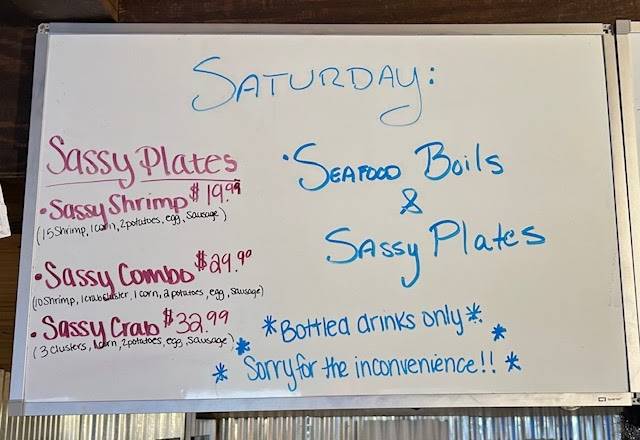 SATURDAY:
Sassy Plates
• Sassy Shrimp $19.99
(15 Shrimp, 1 corn, 2 potatoes, egg, Sausage)
• Sassy Combo $29.90
(10 Shrimp, 1 crab cluster, 1 corn, 2 potatoes, egg, Sausage)
• Sassy Crab $32.99
(3 clusters, 1 corn, 2 potatoes, egg, Sausage)
• SEAFOOD Boils
&
SASSY PLATES
*Bottled drinks only**
** Sorry for the inconvenience!! *